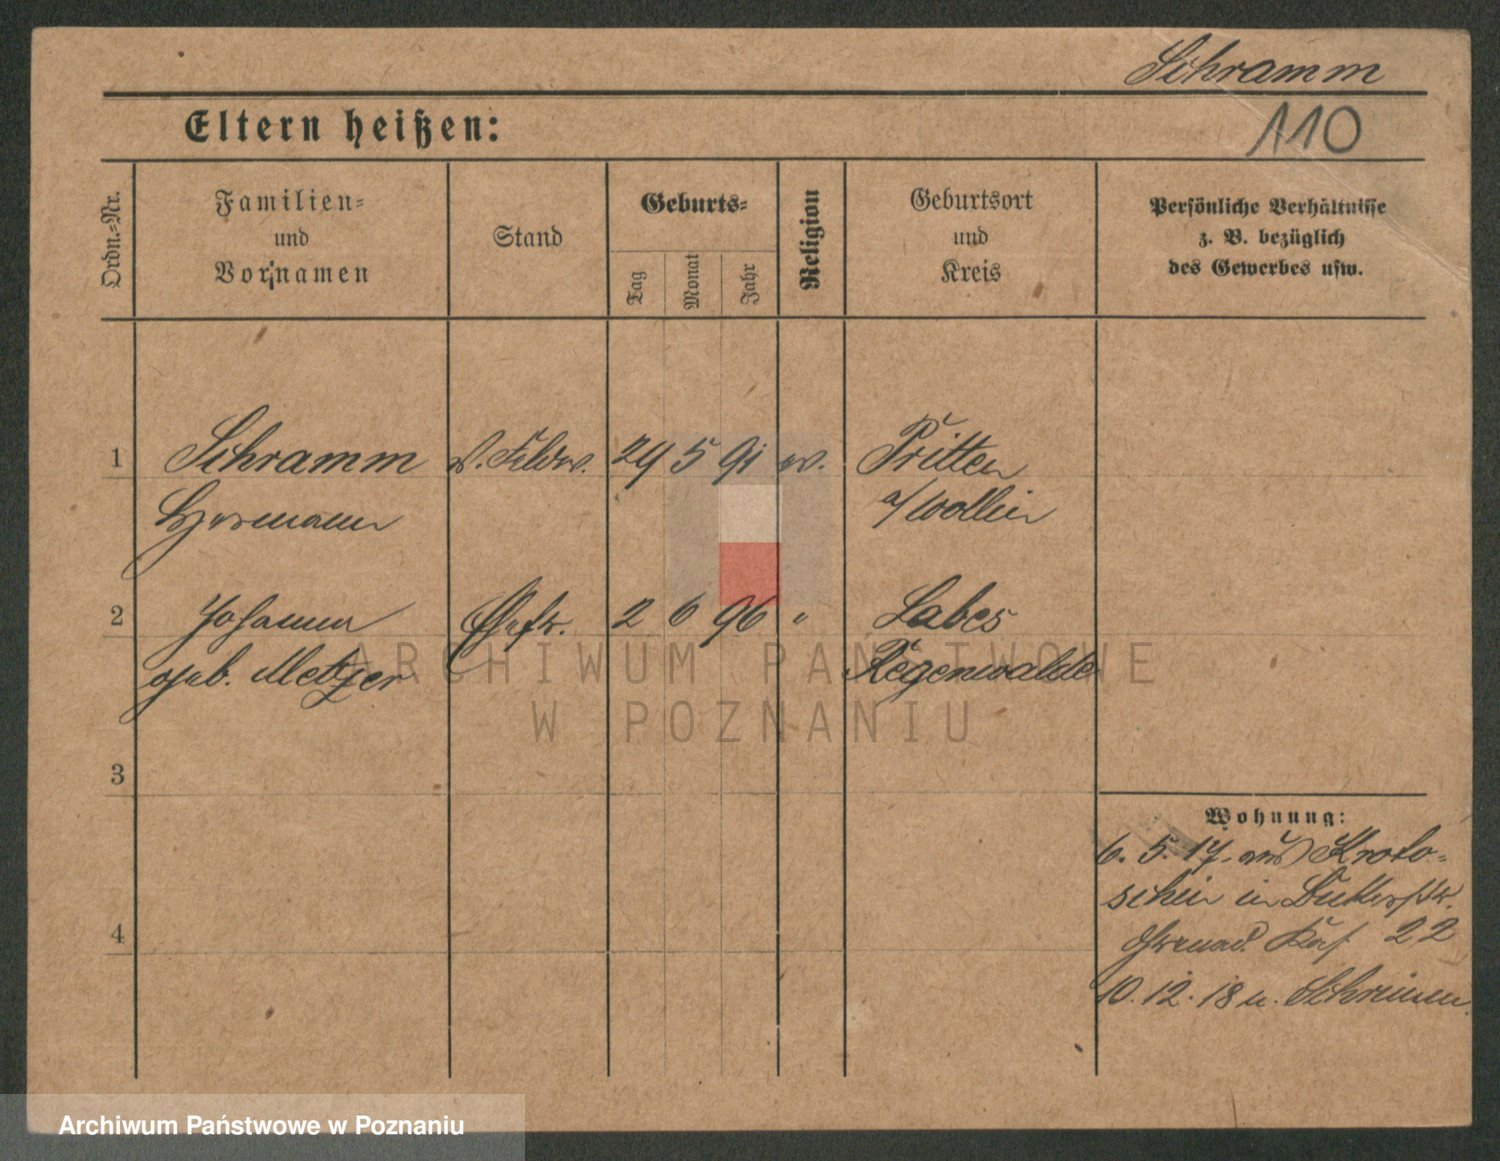 Schramm
110
Eltern heißen:
Ordn.=Nr.
Familien=
und
Vornamen
Stand
Geburts=
Tag
Monat
Jahr
Religion
Geburtsort
und
Kreis
Persönliche Verhältnisse
z. B. bezüglich
des Gewerbes usw.
1 Schramm v. Feldw. 29 5 91 ev. Pritten
Hermann a/Wollin
2 Johanna Ehefr. 2 6 96 " Labes
geb. Metzger Regenwalde
3
4
Wohnung:
6. 5. 17. aus Kroto-
schin in
Grenad. Kas. 22
10. 12. 18 n.
ARCHIWUM PAŃSTWOWE
W POZNANIU
Archiwum Państwowe w Poznaniu